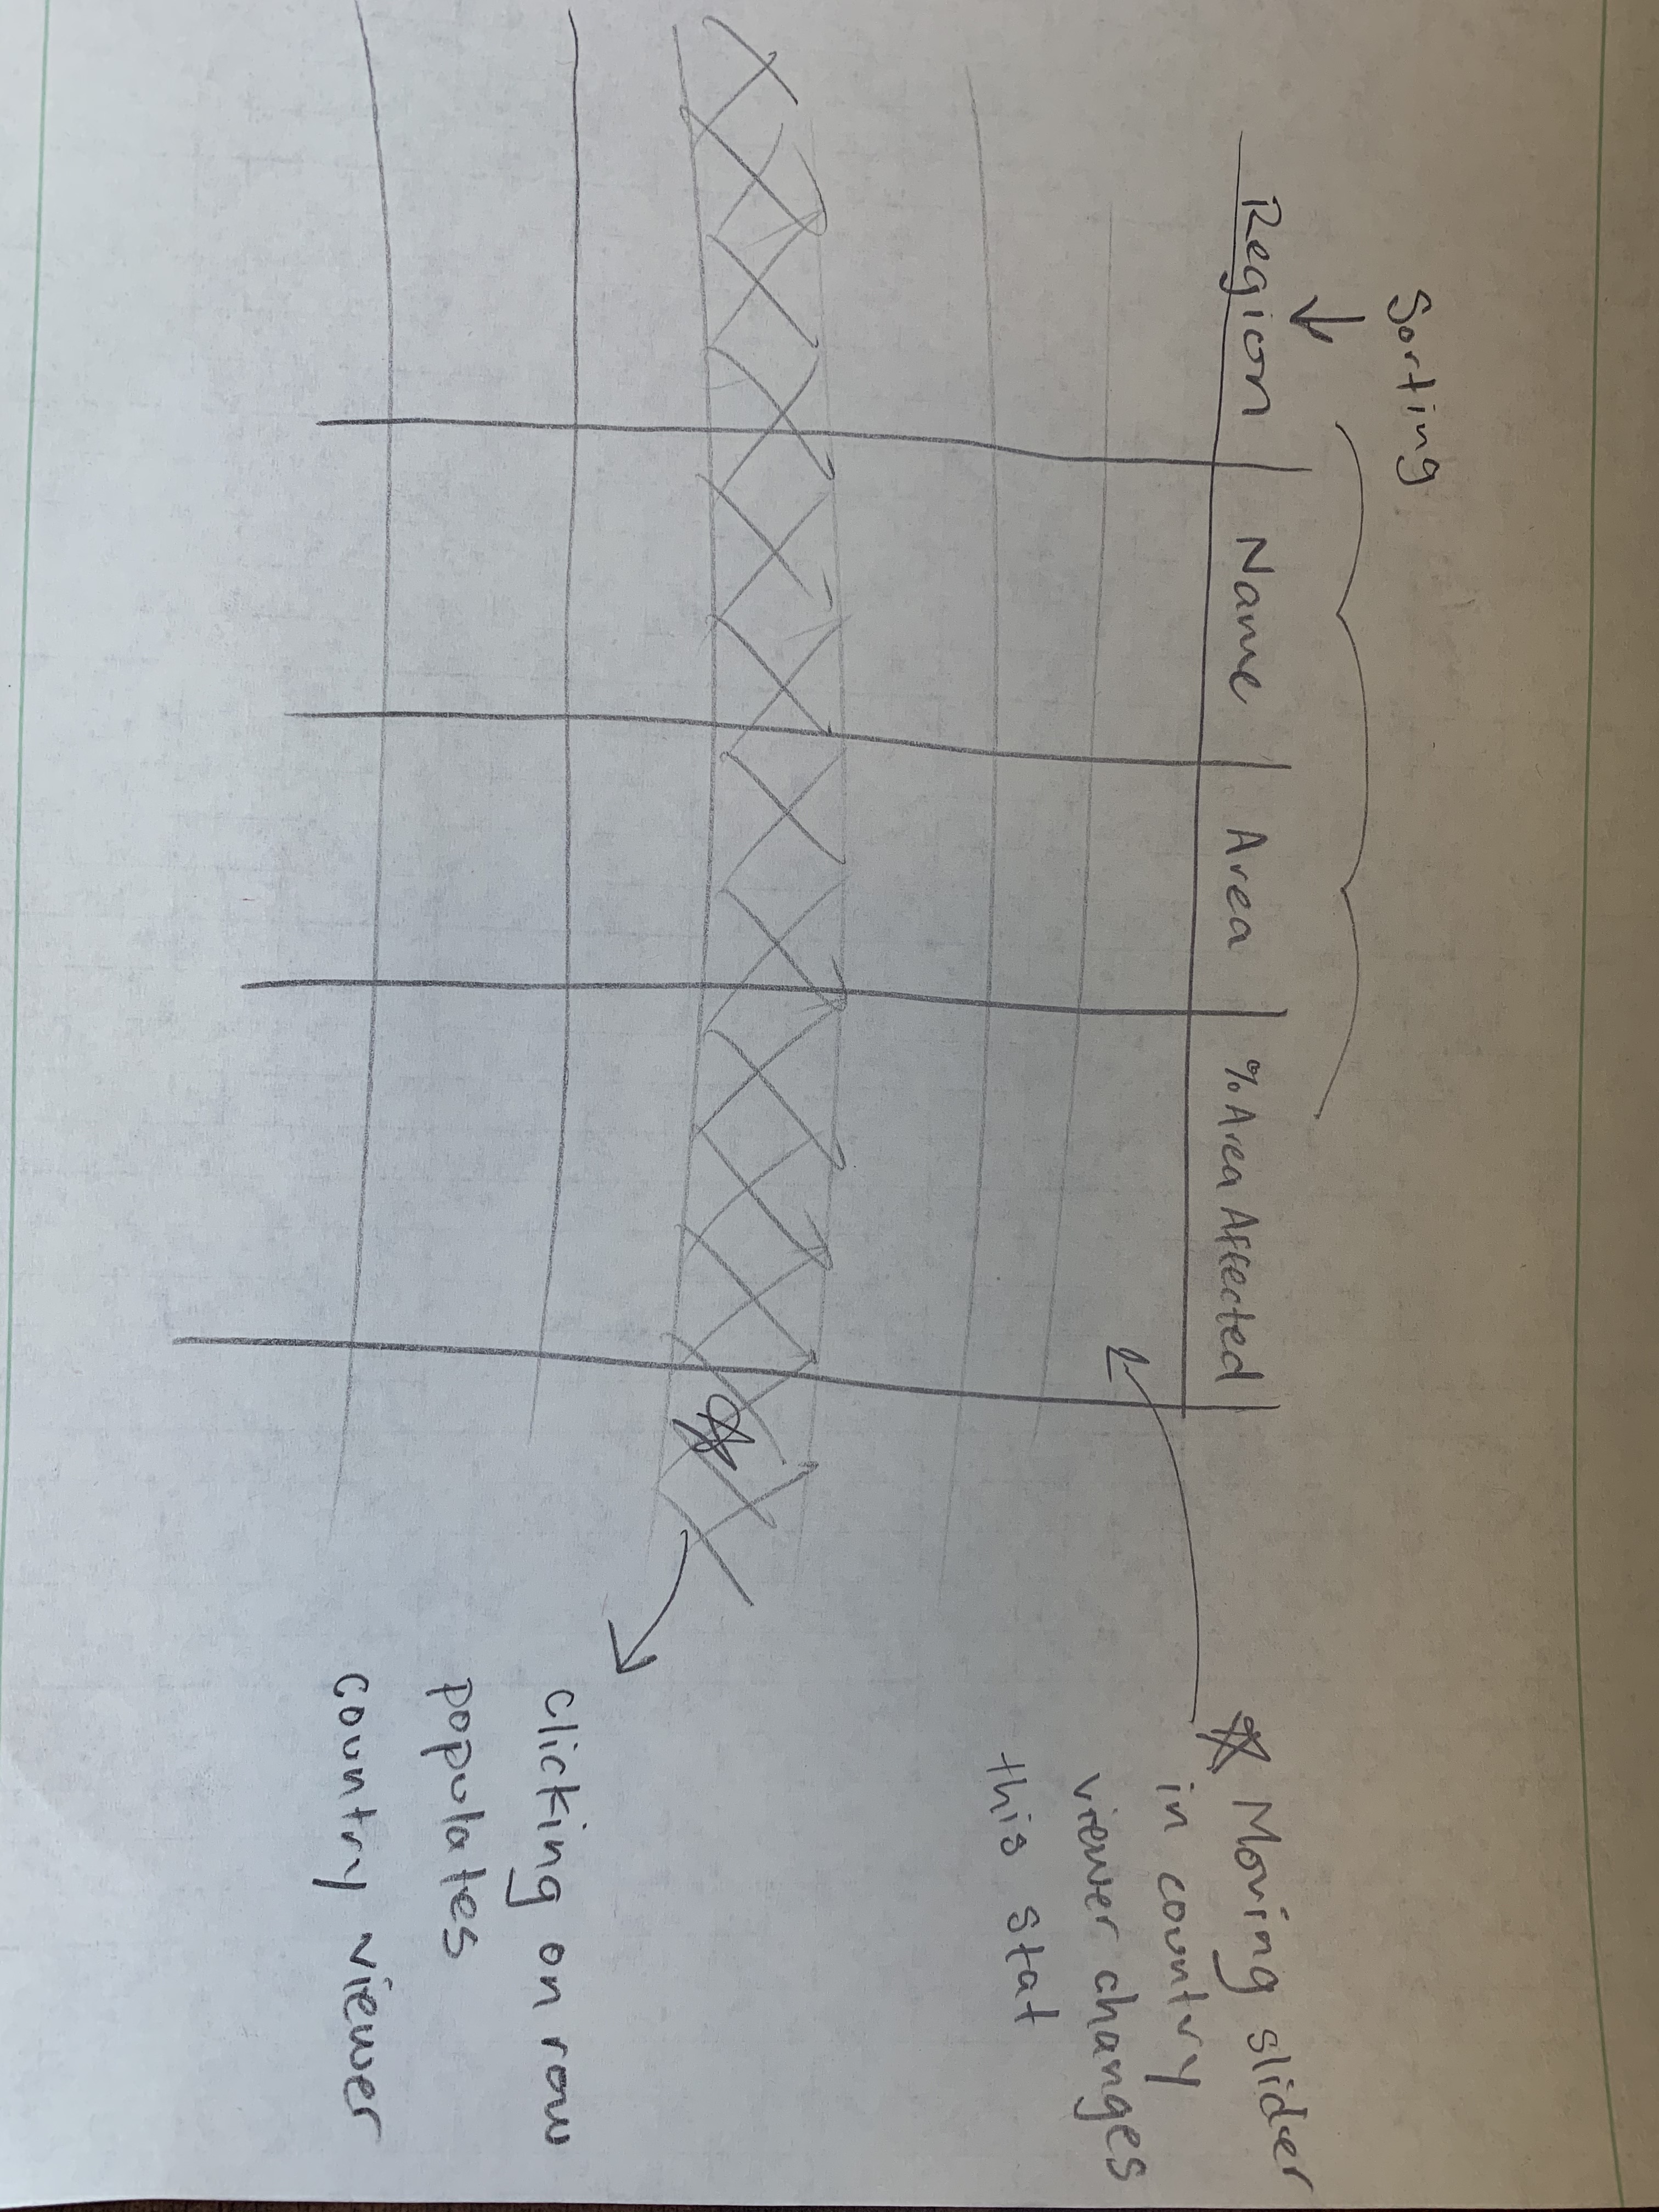 Sorting
Region Name Area % Area Affected
Moving slider
in country
viewer changes
this stat
clicking on row
populates
country viewer